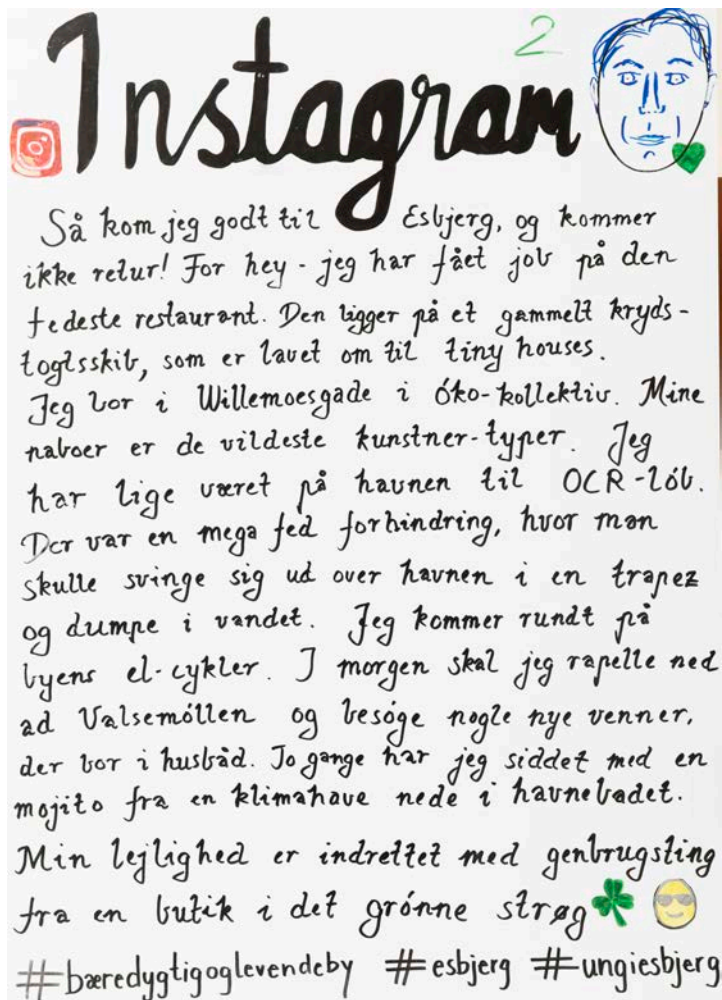 2
Instagram
Så kom jeg godt til Esbjerg, og kommer
ikke retur! For hey - jeg har fået job på den
fedeste restaurant. Den ligger på et gammelt kryds-
togtsskib, som er lavet om til tiny houses.
Jeg bor i Willemoesgade i óko-kollektiv. Mine
naboer er de vildeste kunstner-typer. Jeg
har lige været på havnen til OCR-lób.
Der var en mega fed forhindring, hvor man
skulle svinge sig ud over havnen i en trapez
og dumpe i vandet. Jeg kommer rundt på
byens el-cykler. I morgen skal jeg rapelle ned
ad Valsemóllen og besóge nogle nye venner,
der bor i husbåd. To gange har jeg siddet med en
mojito fra en klimahave nede i havnebadet.
Min lejlighed er indrettet med genbrugsting
fra en butik i det grónne strøg
#bæredygtigoglevendeby #esbjerg #ungiesbjerg